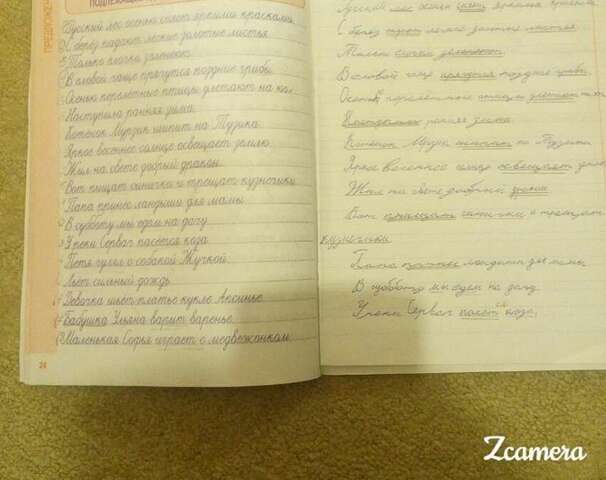 ПРЕДЛОЖЕН
Русский лес осенью сияет яркими красками.
С берёз падают лёгкие золотые листья.
Только сосна зеленеет.
В еловой чаще прячутся поздние грибы.
Осенью перелётные птицы улетают на юг.
Наступила ранняя зима.
Котёнок Мурзик шипит на Тузика.
Яркое весеннее солнце освещает землю.
Жил на свете добрый дракон.
Вот пищат синички и трещат кузнечики.
Папа принёс ландыши для мамы.
В субботу мы едем на дачу.
У реки Серван пасётся коза.
Петя гулял с собакой Жучкой.
Льёт сильный дождь.
Девочка шьёт платье кукле Аксинье.
Бабушка Ульяна варит варенье.
Маленькая Софья играет с медвежонком.
24
Русский лес осенью
С берёз
Только
В еловой чаще прячутся поздние грибы
Осенью перелётные птицы улетают
Наступила ранняя зима.
Котёнок Мурзик шипит на Тузика
Яркое весеннее солнце освещает
Жил на свете добрый дракон
Вот пищат синички и трещат
кузнечики
Папа принёс ландыши для мамы
В субботу мы едем на дачу.
У реки Серван пасётся коза.
Zcamera